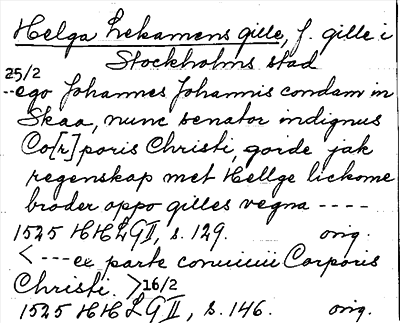 Helga Lekamens gille, f. gille i
Stockholms stad
25/2
--ego Johannes Johannis condam in
Skaa, nunc senator indignus
Co[r]poris Christi, gorde jak
regenskap met Hellge lickome
broder oppo gilles vegna ----
1525 HHLGII, s. 129. orig.
<---ex parte conuiuii Corporis
Christi. >16/2
1525 HHLGII, s. 146. orig.